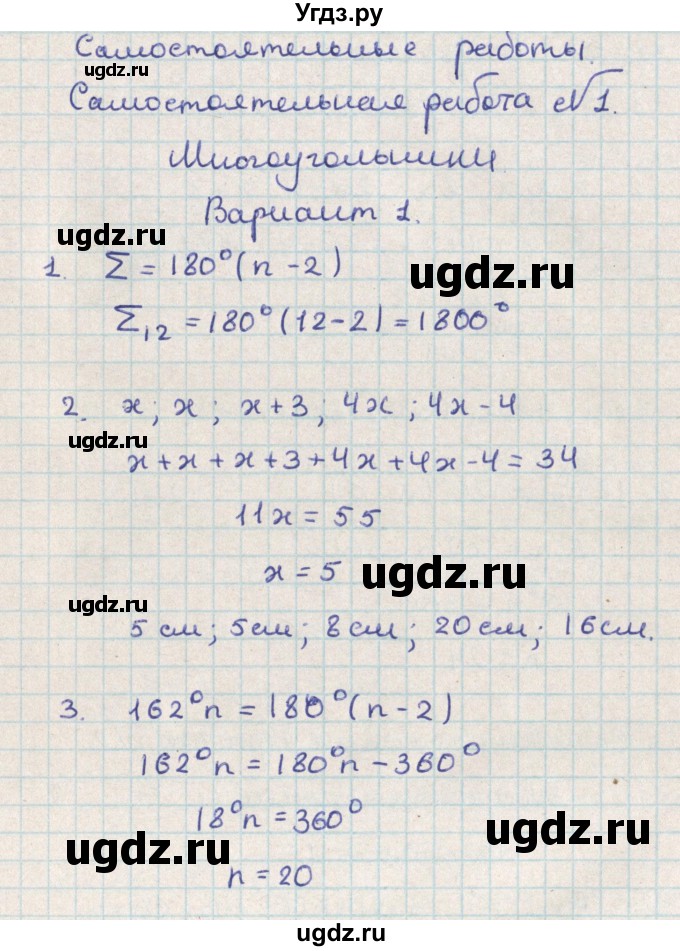 Угдз.ру
Самостоятельные работы.
ugdz.ru
Самостоятельная работа №1.
Многоугольники
Вариант 1.
ugdz.ru
1. Σ = 180°(n - 2)
ugdz.ru
Σ₁₂ = 180°(12-2) = 1800°
2. x; x; x+3; 4x; 4x-4
ugdz.ru
x+x+x+3+4x+4x-4=34
11x = 55
x = 5
ugdz.ru
ugdz.ru
5 см; 5см; 8см; 20см; 16см.
3. 162°n = 180°(n-2)
162°n = 180°n - 360°
18°n = 360°
ugdz.ru
ugdz.ru
n = 20
ugdz.ru